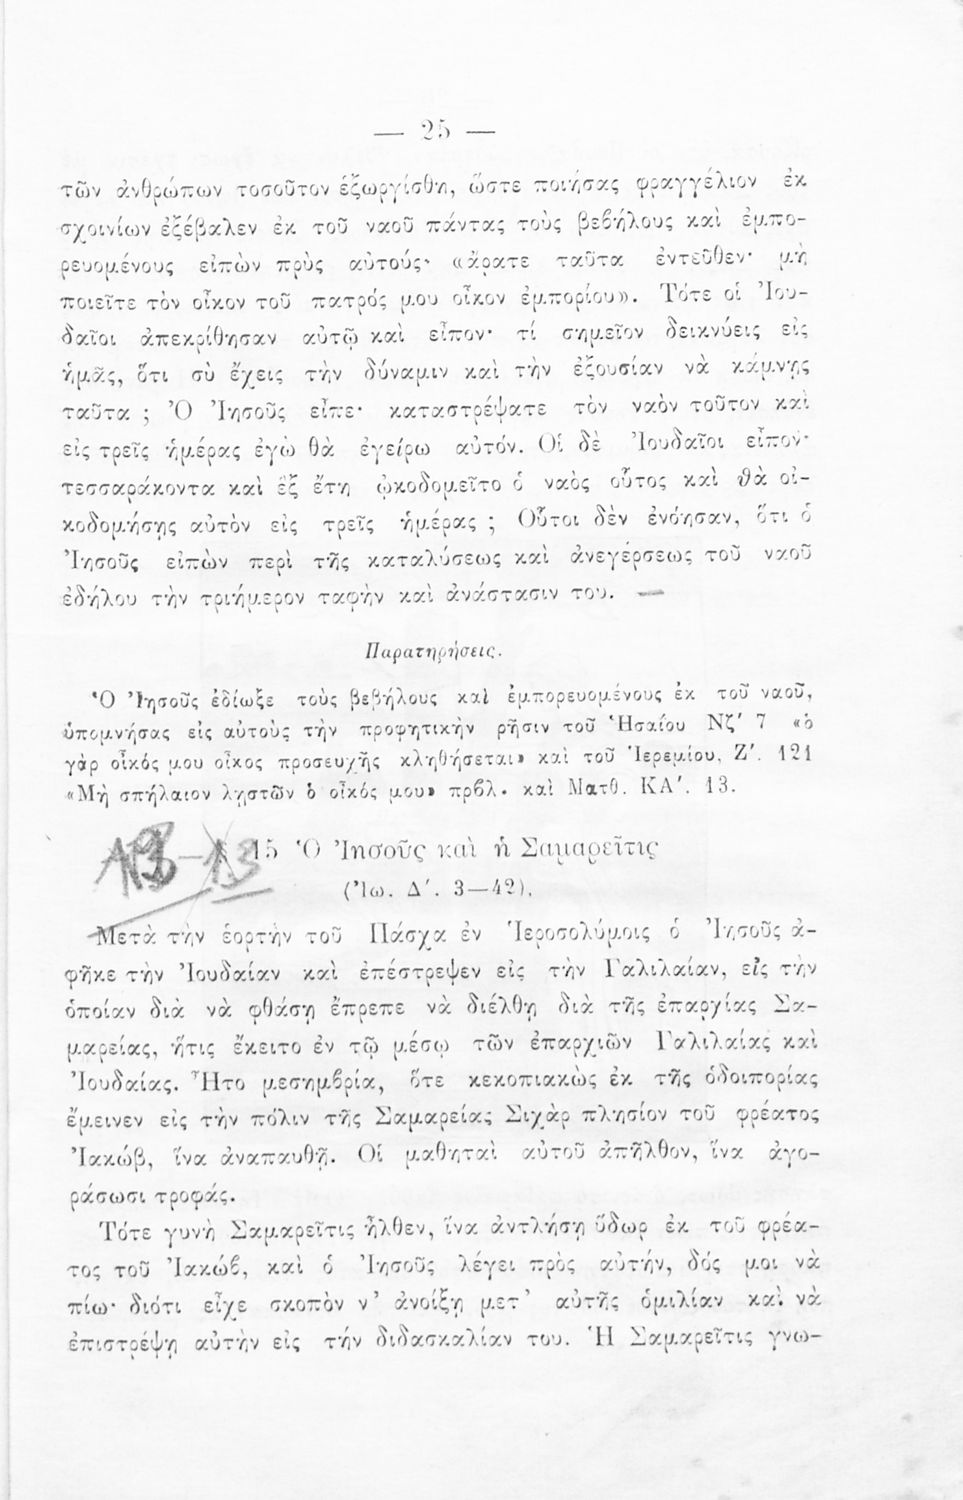 — 25 —
τῶν ἀνθρώπων τοσοῦτον ἐξωργίσθη, ὥστε ποιήσας φραγγέλιον ἐκ
σχοινίων ἐξέβαλεν ἐκ τοῦ ναοῦ πάντας τοὺς βεβήλους καὶ ἐμπο-
ρευομένους εἰπὼν πρὸς αὐτούς· «ἄρατε ταῦτα ἐντεῦθεν· μὴ
ποιεῖτε τὸν οἶκον τοῦ πατρός μου οἶκον ἐμπορίου». Τότε οἱ Ἰου-
δαῖοι ἀπεκρίθησαν αὐτῷ καὶ εἶπον· τί σημεῖον δεικνύεις εἰς
ἡμᾶς, ὅτι σὺ ἔχεις τὴν δύναμιν καὶ τὴν ἐξουσίαν νὰ κάμνῃς
ταῦτα ; Ὁ Ἰησοῦς εἶπε· καταστρέψατε τὸν ναὸν τοῦτον καὶ
εἰς τρεῖς ἡμέρας ἐγὼ θὰ ἐγείρω αὐτόν. Οἱ δὲ Ἰουδαῖοι εἶπον·
τεσσαράκοντα καὶ ἓξ ἔτη ᾠκοδομεῖτο ὁ ναὸς οὗτος καὶ θὰ οἰ-
κοδομήσῃς αὐτὸν εἰς τρεῖς ἡμέρας ; Οὗτοι δὲν ἐνόησαν, ὅτι ὁ
Ἰησοῦς εἰπὼν περὶ τῆς καταλύσεως καὶ ἀνεγέρσεως τοῦ ναοῦ
ἐδήλου τὴν τριήμερον ταφὴν καὶ ἀνάστασιν του. —
Παρατηρήσεις.
Ὁ Ἰησοῦς ἐδίωξε τοὺς βεβήλους καὶ ἐμπορευομένους ἐκ τοῦ ναοῦ,
ὑπομνήσας εἰς αὐτοὺς τὴν προφητικὴν ρῆσιν τοῦ Ἡσαΐου Νζ′ 7 «ὁ
γὰρ οἶκός μου οἶκος προσευχῆς κληθήσεται» καὶ τοῦ Ἱερεμίου, Ζ′. 121
«Μὴ σπήλαιον λῃστῶν ὁ οἶκός μου» πρβλ. καὶ Ματθ. ΚΑ′. 13.
15 Ὁ Ἰησοῦς καὶ ἡ Σαμαρεῖτις
(Ἰω. Δ′. 3—42).
Μετὰ τὴν ἑορτὴν τοῦ Πάσχα ἐν Ἱεροσολύμοις ὁ Ἰησοῦς ἀ-
φῆκε τὴν Ἰουδαίαν καὶ ἐπέστρεψεν εἰς τὴν Γαλιλαίαν, εἰς τὴν
ὁποίαν διὰ νὰ φθάσῃ ἔπρεπε νὰ διέλθῃ διὰ τῆς ἐπαρχίας Σα-
μαρείας, ἥτις ἔκειτο ἐν τῷ μέσῳ τῶν ἐπαρχιῶν Γαλιλαίας καὶ
Ἰουδαίας. Ἦτο μεσημβρία, ὅτε κεκοπιακὼς ἐκ τῆς ὁδοιπορίας
ἔμεινεν εἰς τὴν πόλιν τῆς Σαμαρείας Σιχὰρ πλησίον τοῦ φρέατος
Ἰακώβ, ἵνα ἀναπαυθῇ. Οἱ μαθηταὶ αὐτοῦ ἀπῆλθον, ἵνα ἀγο-
ράσωσι τροφάς.
Τότε γυνὴ Σαμαρεῖτις ἦλθεν, ἵνα ἀντλήσῃ ὕδωρ ἐκ τοῦ φρέα-
τος τοῦ Ἰακώβ, καὶ ὁ Ἰησοῦς λέγει πρὸς αὐτήν, δός μοι νὰ
πίω· διότι εἶχε σκοπὸν ν’ ἀνοίξῃ μετ’ αὐτῆς ὁμιλίαν καὶ νὰ
ἐπιστρέψῃ αὐτὴν εἰς τήν διδασκαλίαν του. Ἡ Σαμαρεῖτις γνω-